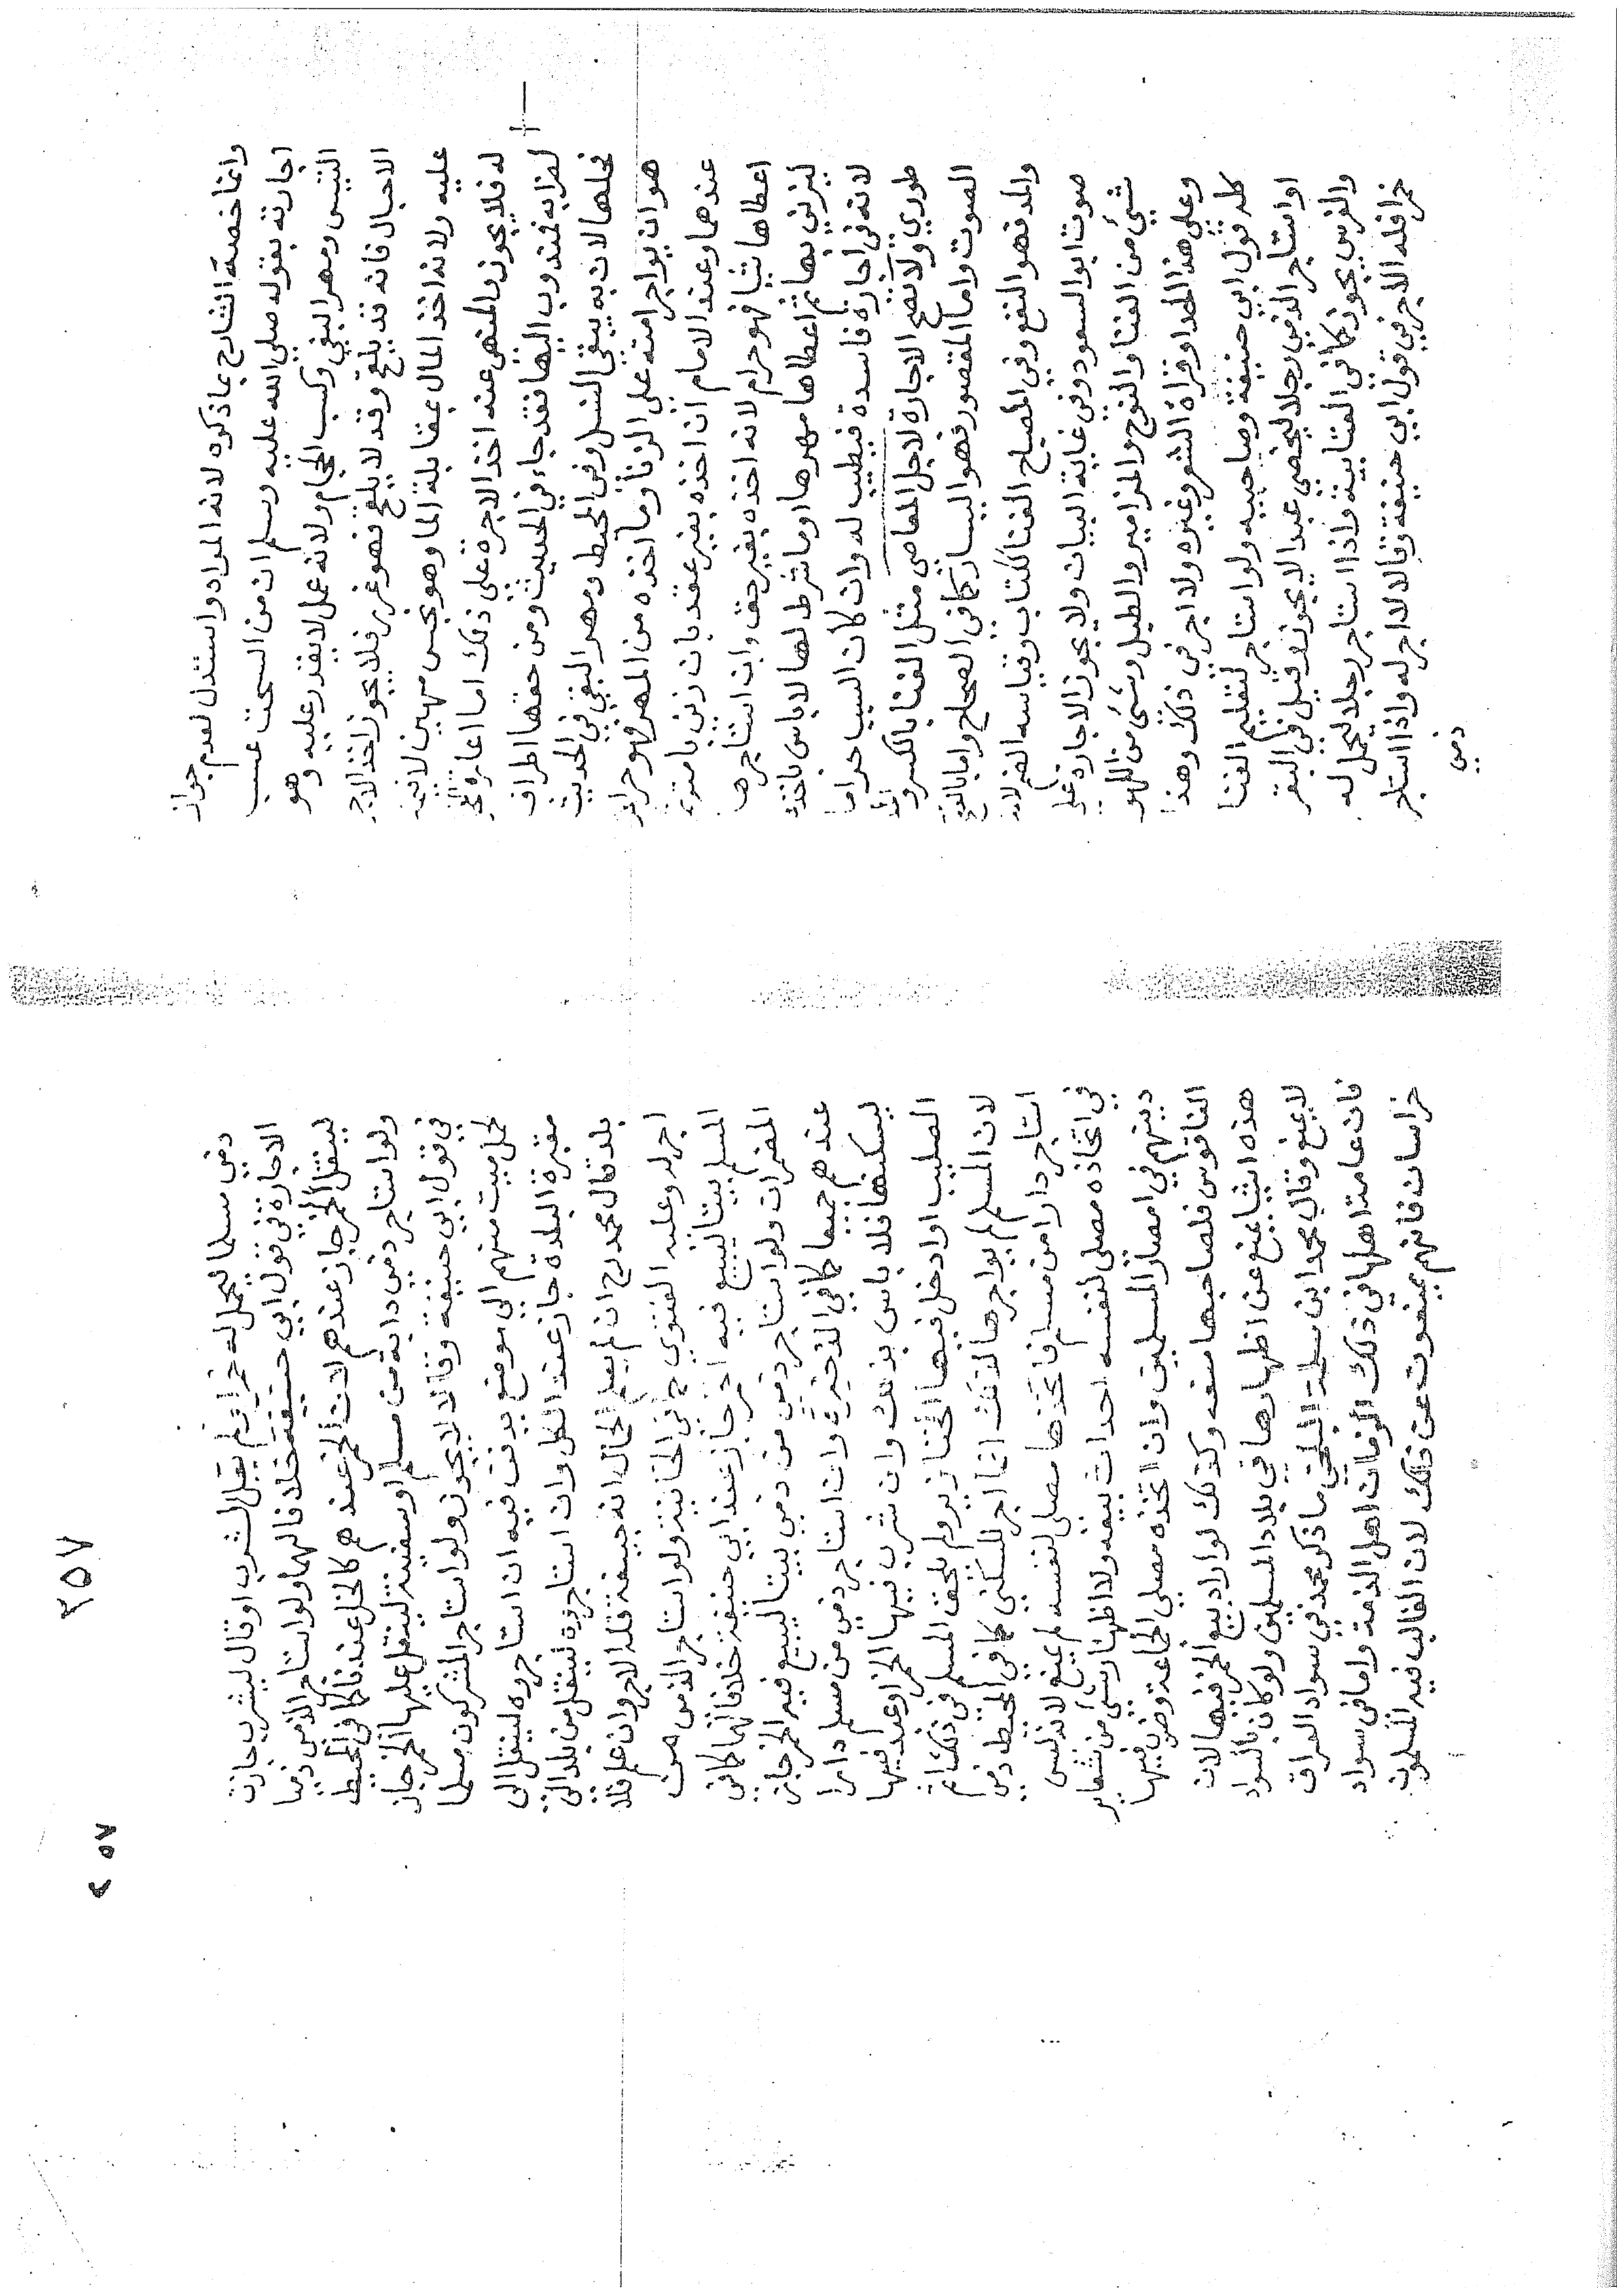 وانما خصه الشارح بما ذكره لانه المراد واستدل لعدم جواز
اجارته بقوله صلي الله عليه وسلم ان من السحت عسب
التيس ومهر البغي وكسب الحجام ولانه عمل لا يقدر عليه وهو
الاحبال فانه قد يلقح وقد لا يلقح فهو غرر فلا يجوز اخذ الاجر
عليه ولانه اخذ المال بمقابلة الما وهو نجس مهين لا قيمة
له فلا يجوز والمنهى عنه اخذ الاجرة على ذلك اما اعارة
لضرابه فمندوب اليها فقد جاء في الحديث ومن حقها اطراق
فحلها لان به يبقى النسل وفي المحيط ومهر البغي في الحديث
هو ان يواجر امته علي الزنا وما اخذه من المهر فهو حرام
عندهما وعند الامام ان اخذه بغير عقد بان زني بامته ثم
اعطاها شيا فهو حرام لانه اخذه بغير حق وان استاجرها
ليزني بها ثم اعطاها مهرها او ما شرط لها لا باس باخذه
لانه في اجارة فاسدة فيطيب له وان كان السبب حراما
طوري ولا تصح الاجارة لاجل المعاصي مثل الغنا بالكسر والمد
الصوت واما المقصور فهو اليسار كما في الصحاح واما بالفتح
والمد فهو النفع وفي المصباح الغنا ككتاب وقياسه الضم لانه
صوت ابو السعود وفي غاية البيان ولا يجوز الاجارة على
شيء من الغنا والنوح والمزامير والطبل وشى من اللهو
وعلي هذا الحدا وقراة الشعر وغيره ولا اجر في ذلك وهذا
كله قول ابي حنيفة وصاحبيه ولو استاجر لتعليم الغنا
او استاجر الذمي رجلا ليخصي عبدا لا يجوز وقيل في البقر
والفرس يجوز كما في العتابية واذا استاجر رجلا ليحمل له
خمرا فله الاجر في قول ابي حنيفة وقالا لا اجر له واذا استاجر
ذمي
٢٥٧
٢٥٧
ذمي مسلما ليحمل له خمرا ولم يقل لشرب او قال ليشرب جازت
الاجارة في قول ابي حنيفة خلافا لهما ولو استاجر الذمي ذميا
لينقل الخمر جاز عندهم لان الخمر عندهم كالخل عندنا كما في المحيط
ولو استاجر ذمي دابة من مسلم او سفينة لينقل عليها الخمر جاز
في قول ابي حنيفة وقالا لا يجوز ولو استاجر المشركون مسلما
لحمل ميت منهم الي موضع يدفن فيه ان استاجروه لينقل الى
مقبرة البلدة جاز عند الكل وان استاجروه لينقل من بلد الى
بلد قال محمد رح ان لم يعلم الحمال انه جيفة فله الاجر وان علم فلا
اجر له وعليه الفتوي كما في الخانية ولو استاجر الذمى من
المسلم بيتا ليبيع فيه الخمر جاز عند ابي حنيفة خلافا لهما كما في
المضمرات ولو استاجر ذمي من ذمي بيتا ليبيع فيه الخمر جاز
عندهم جميعا كما في الذخيرة وان استاجر ذمي من مسلم دارا
ليسكنها فلا باس بذلك وان شرب فيها الخمر او عبد فيها
الصليب او ادخل فيها الخنازير ولم يلحق المسلم في ذلك اثم
لان المسلم لم يواجرها لذلك انما اجر للسكني كما في المحيط ذمي
استاجر دارا من مسلم فاتخذها مصلى لنفسه لم يمنع لانه ليس
في اتخاذه مصلى لنفسه احداث بيعه ولا اظهار شيء من شعاير
دينهم في امصار المسلمين وان اتخذه مصلي لجماعة وضرب فيها
الناقوس فلصاحبها منعه وكذلك لو اراد بيع الخمر فيها لان
هذه اشيا يمنع عن اظهارها في بلاد المسلمين ولو كان بالسواد
لا يمنع وقال محمد ابن سلمة البلخي ما ذكر محمد في سواد العراق
فان عامة اهلها في ذلك الزمان اهل الذمة واما في سواد
خراسان فانهم يمنعون عن ذلك لان الغالب فيه المسلمون